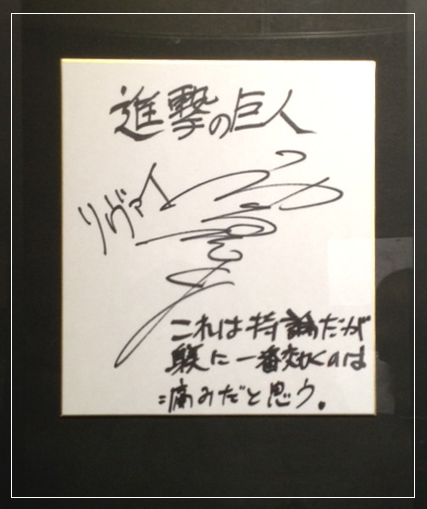 進撃の巨人
リヴァイ
これは持論だが
躾に一番効くのは
痛みだと思う。